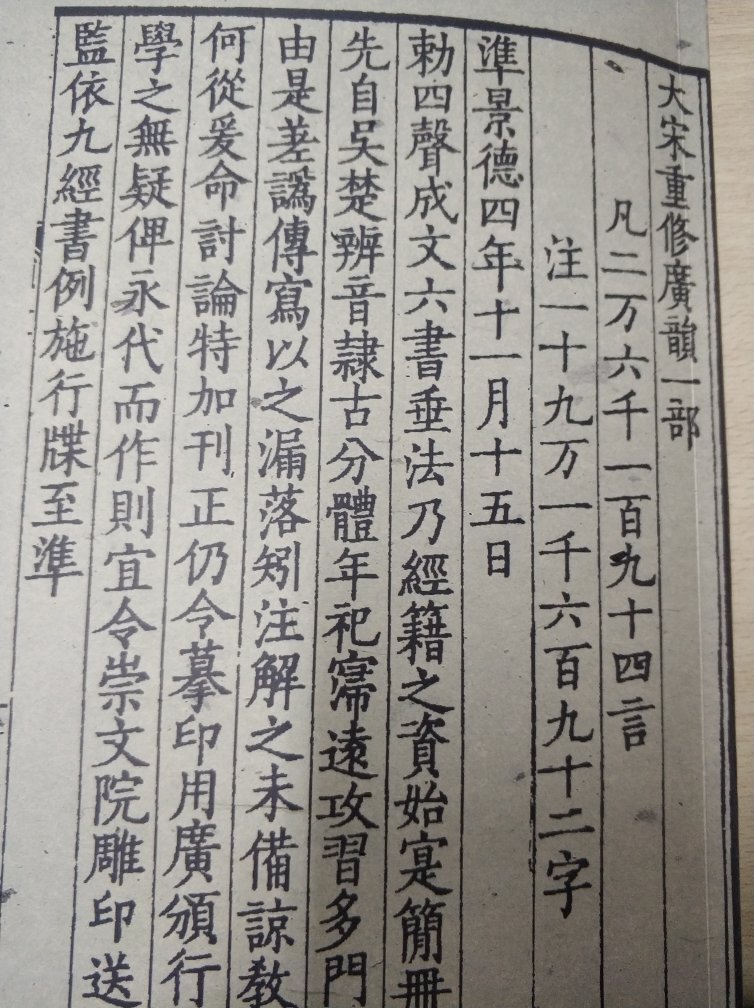 大宋重修廣韻一部
凡二万六千一百九十四言
注一十九万一千六百九十二字
準景德四年十一月十五日
勑四聲成文六書垂法乃經籍之資始寔簡冊
先自吴楚辨音隷古分體年祀寖遠攻習多門
由是差譌傳寫以之漏落矧注解之未備諒教
何從爰命討論特加刊正仍令摹印用廣頒行
學之無疑俾永代而作則宜令崇文院雕印送
監依九經書例施行牒至準